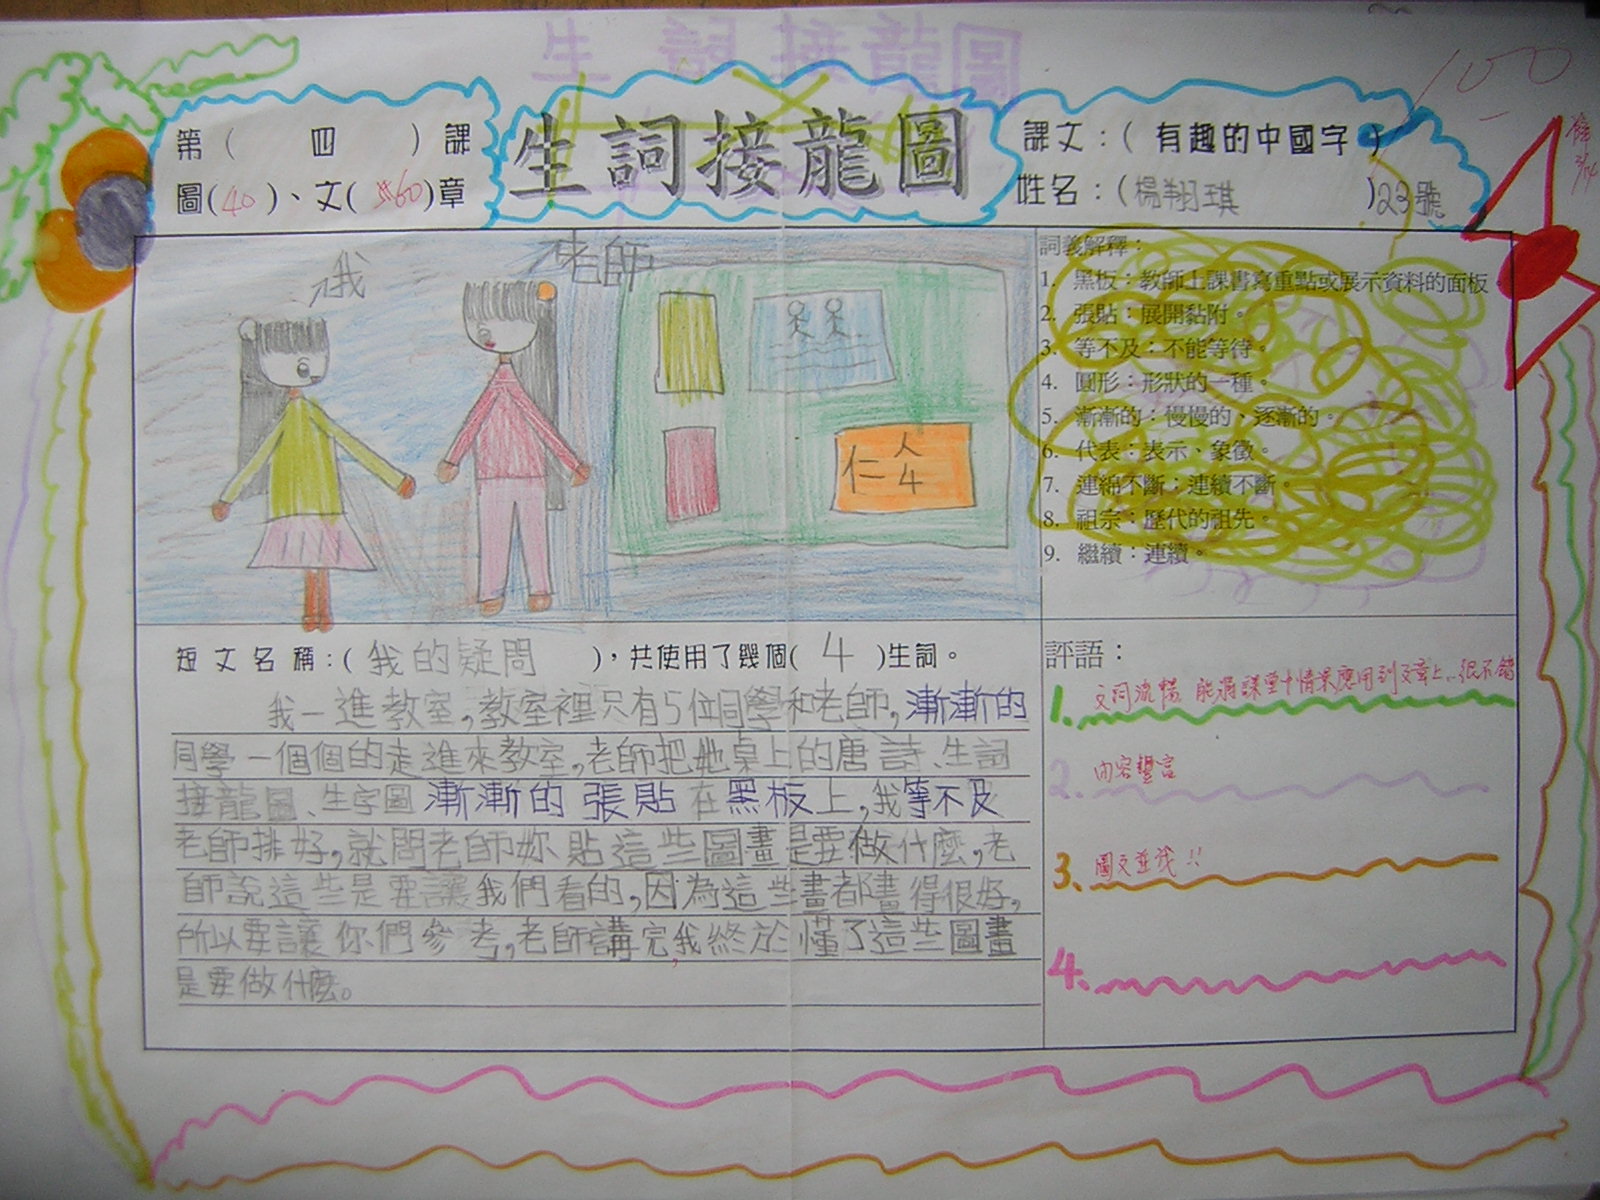 生詞接龍圖
100
第(四)課
圖(40)、文(60)章
生詞接龍圖
課文：(有趣的中國字)
姓名：(楊翔琪)23號
我
老師
人
仁 4
詞義解釋：
1. 黑板：教師上課書寫重點或展示資料的面板
2. 張貼：展開黏附。
3. 等不及：不能等待。
4. 圓形：形狀的一種。
5. 漸漸的：慢慢的、逐漸的。
6. 代表：表示、象徵。
7. 連綿不斷：連續不斷。
8. 祖宗：歷代的祖先。
9. 繼續：連續。
短文名稱：(我的疑問)，共使用了幾個(4)生詞。
我一進教室,教室裡只有5位同學和老師,漸漸的
同學一個個的走進來教室,老師把她桌上的唐詩、生詞
接龍圖、生字圖漸漸的張貼在黑板上,我等不及
老師排好,就問老師妳貼這些圖畫是要做什麼,老
師說這些是要讓我們看的,因為這些畫都畫得很好,
所以要讓你們參考,老師講完,我終於懂了這些圖畫
是要做什麼。
評語：
1. 文詞流暢 能將課堂中情景應用到文章上...很不錯
2. 內容豐富
3. 圖文並茂!!
4.